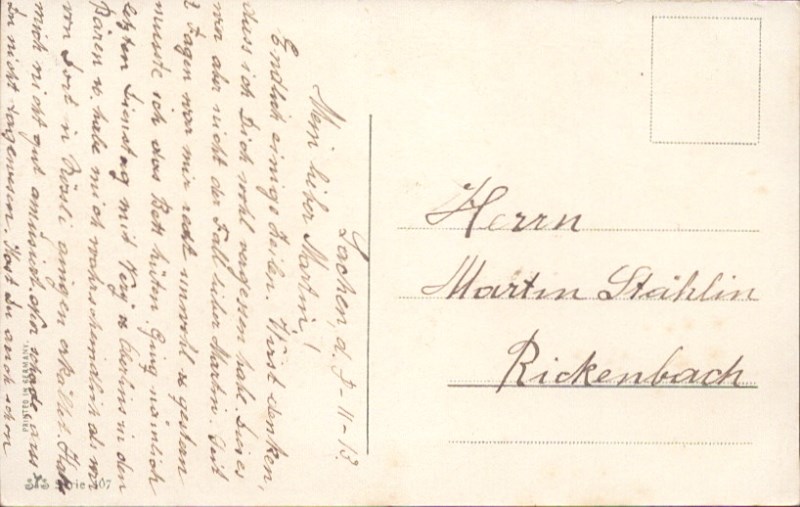 Lachen, d. 7-11-13.
Mein lieber Martin!
Endlich einige Zeilen. Wirst denken,
dass ich Dich wohl vergessen hab. Dies
war aber nicht der Fall lieber Martin. Seit
2 Tagen war mir recht unwohl & gestern
musste ich das Bett hüten. Ging nämlich
letzten Dienstag mit & in den
Bären u. habe mich wahrscheinlich als wir
von dort n. Rössli gingen erkältet. Habe
mich nicht gut amüsiert, schade
Du nicht dagewesen. Hast Du auch schon
Herrn
Martin Stählin
Rickenbach
PRINTED IN GERMANY
Serie 407